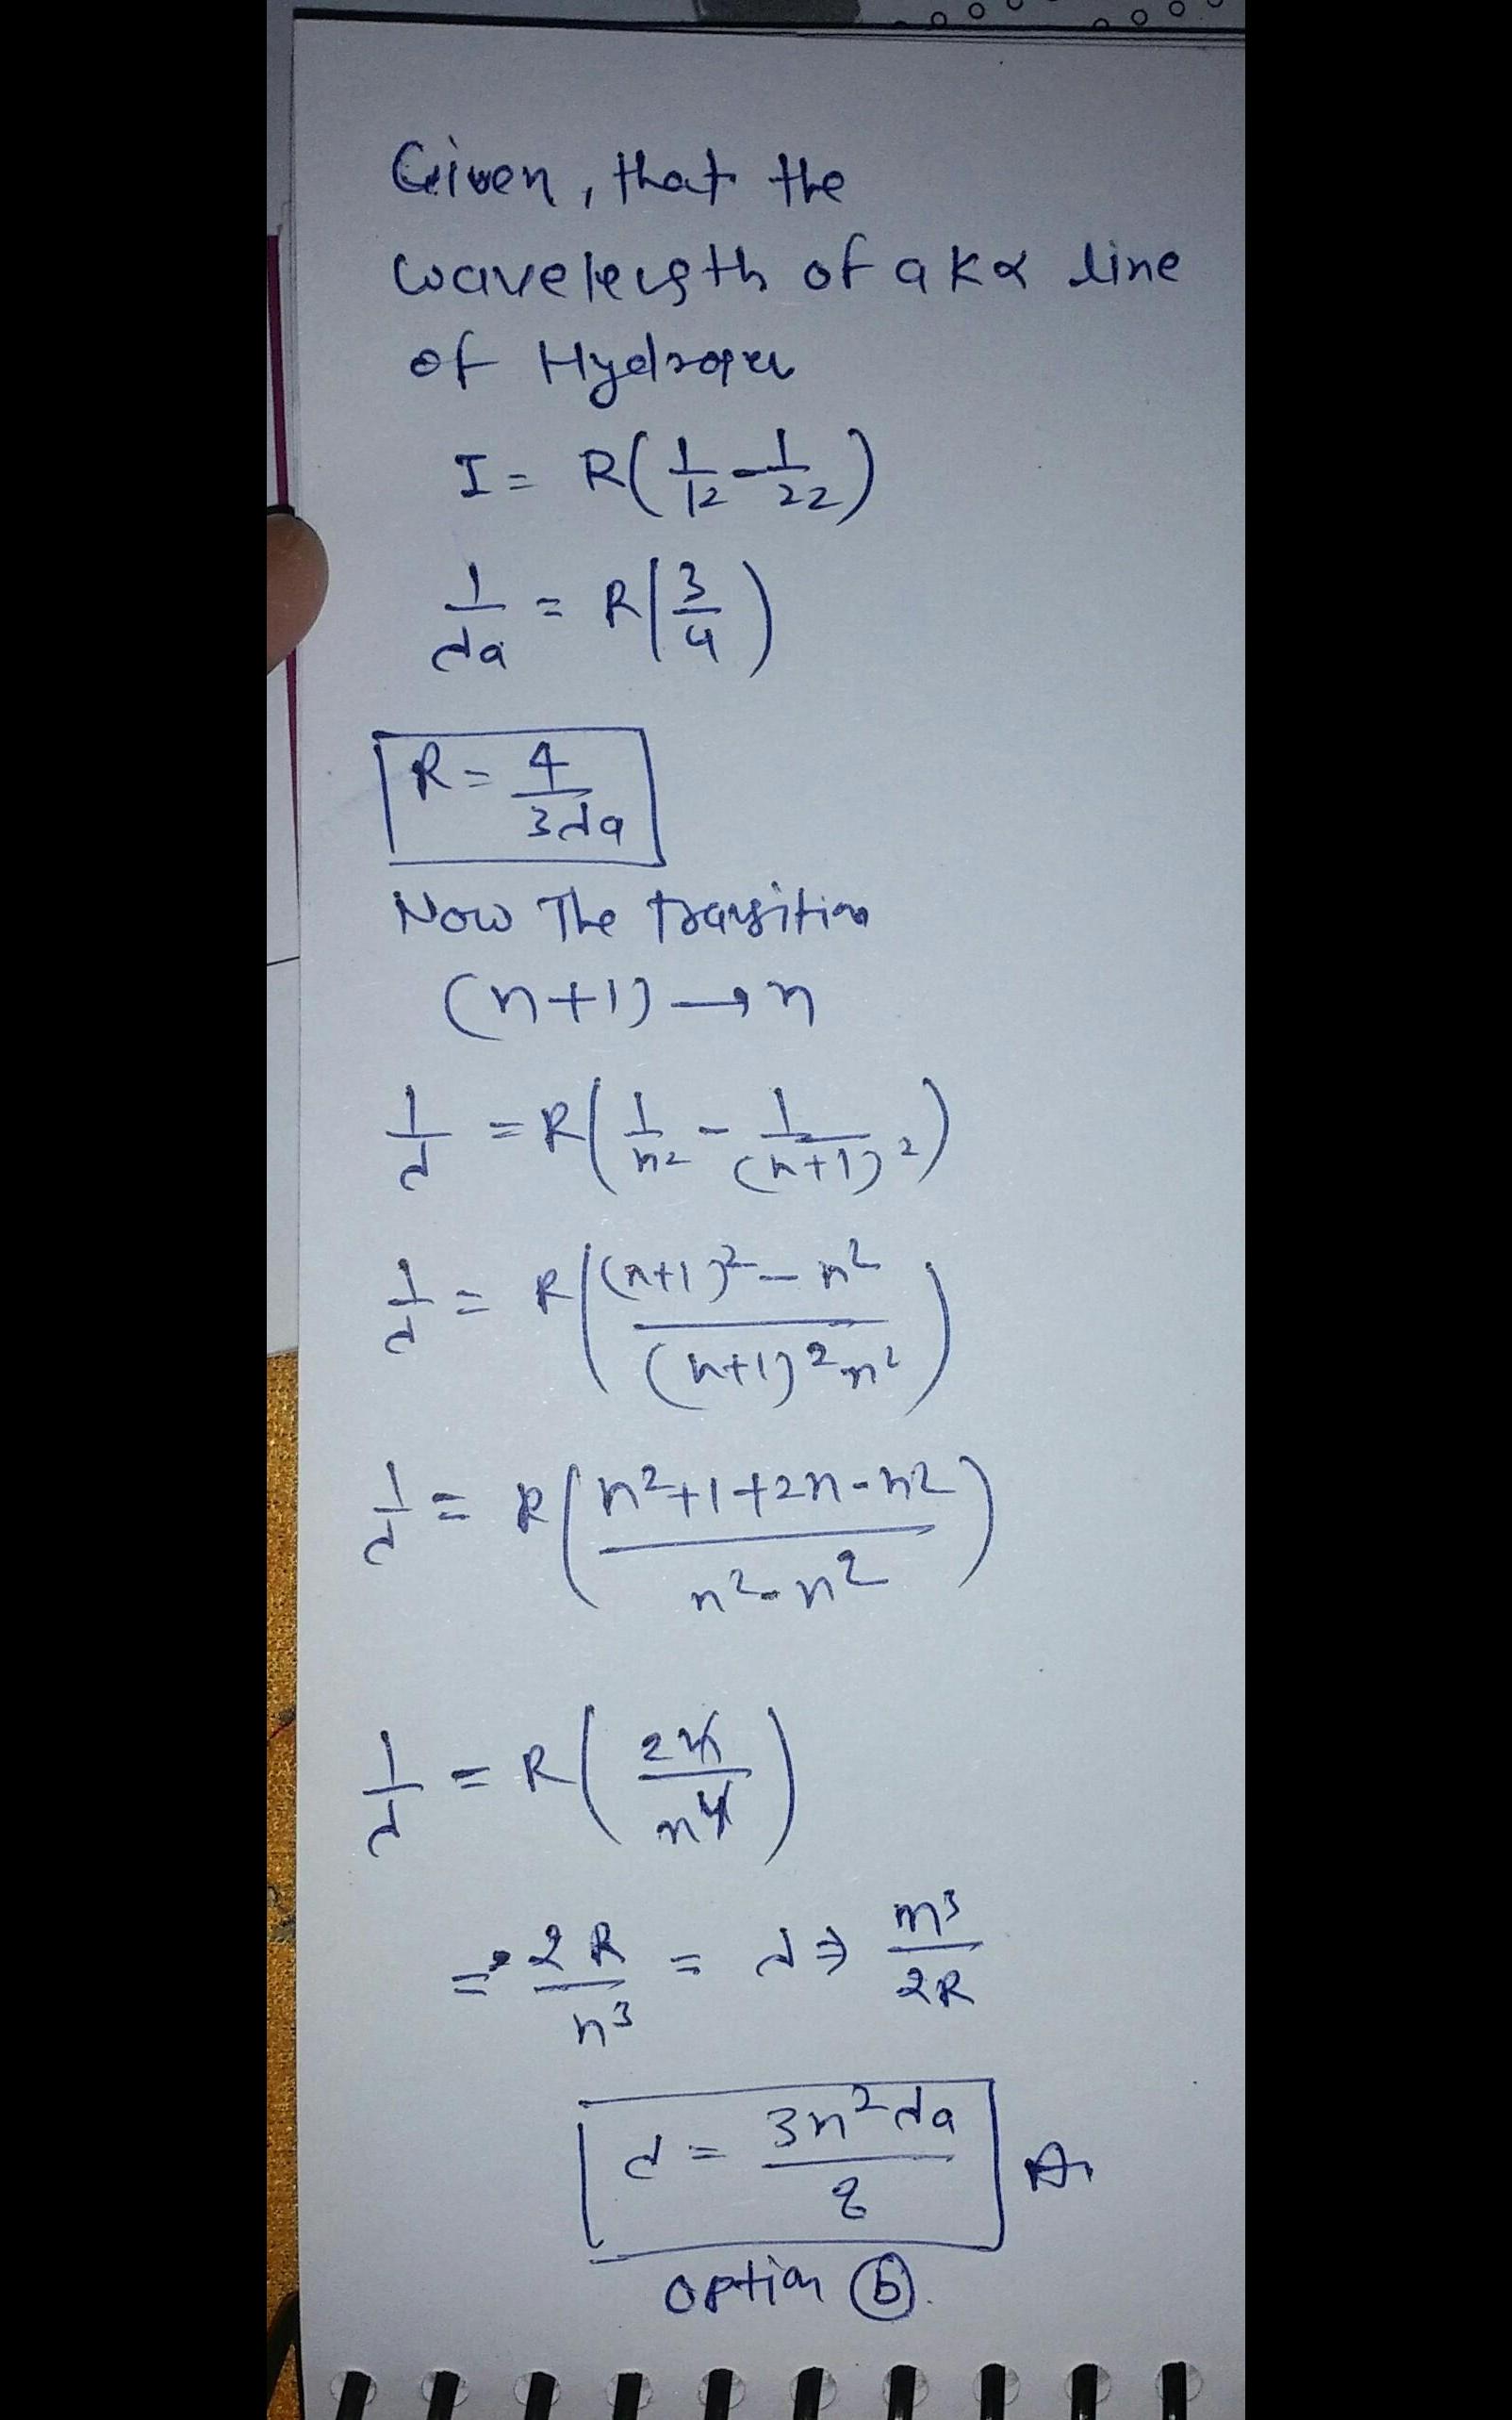 Given, that the
wavelength of a kα line
of Hydrogen
I = R(1/12 - 1/22)
1/λa = R(3/4)
R = 4/3λa
Now The transition
(n+1) → n
1/λ = R(1/n2 - 1/(n+1)2)
1/λ = R((n+1)2 - n2/(n+1)2n2)
1/λ = R(n2+1+2n-n2/n2.n2)
1/λ = R(2n/n4)
= 2R/n3 = λ ⇒ n3/2R
λ = 3n2λa/8 A
option (b).